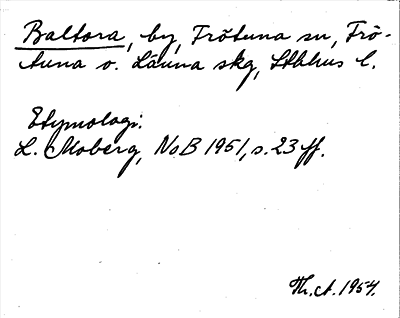 Baltora, by, Frötuna sn, Frö-
tuna o. Länna skg, Sthlms l.
Etymologi:
L. Moberg, NoB 1951, s. 23 ff.
Th. A. 1954.